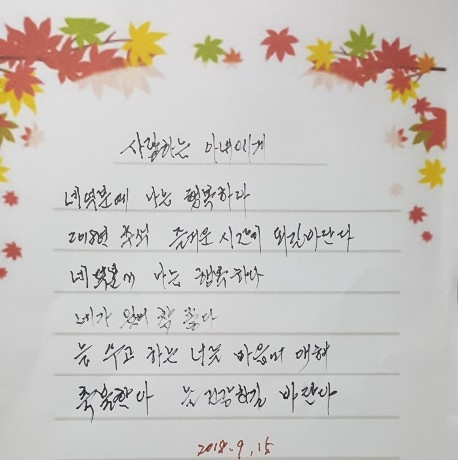 사랑하는 아내에게
네덕분에 나는 행복하다
2018년 추석 즐거운 시간이 되길 바란다
네덕분에 나는 행복하다
네가 있어 참 좋다
늘 수고 하는 너의 마음에 대해
축복한다 늘 건강하길 바란다
2018.9.15